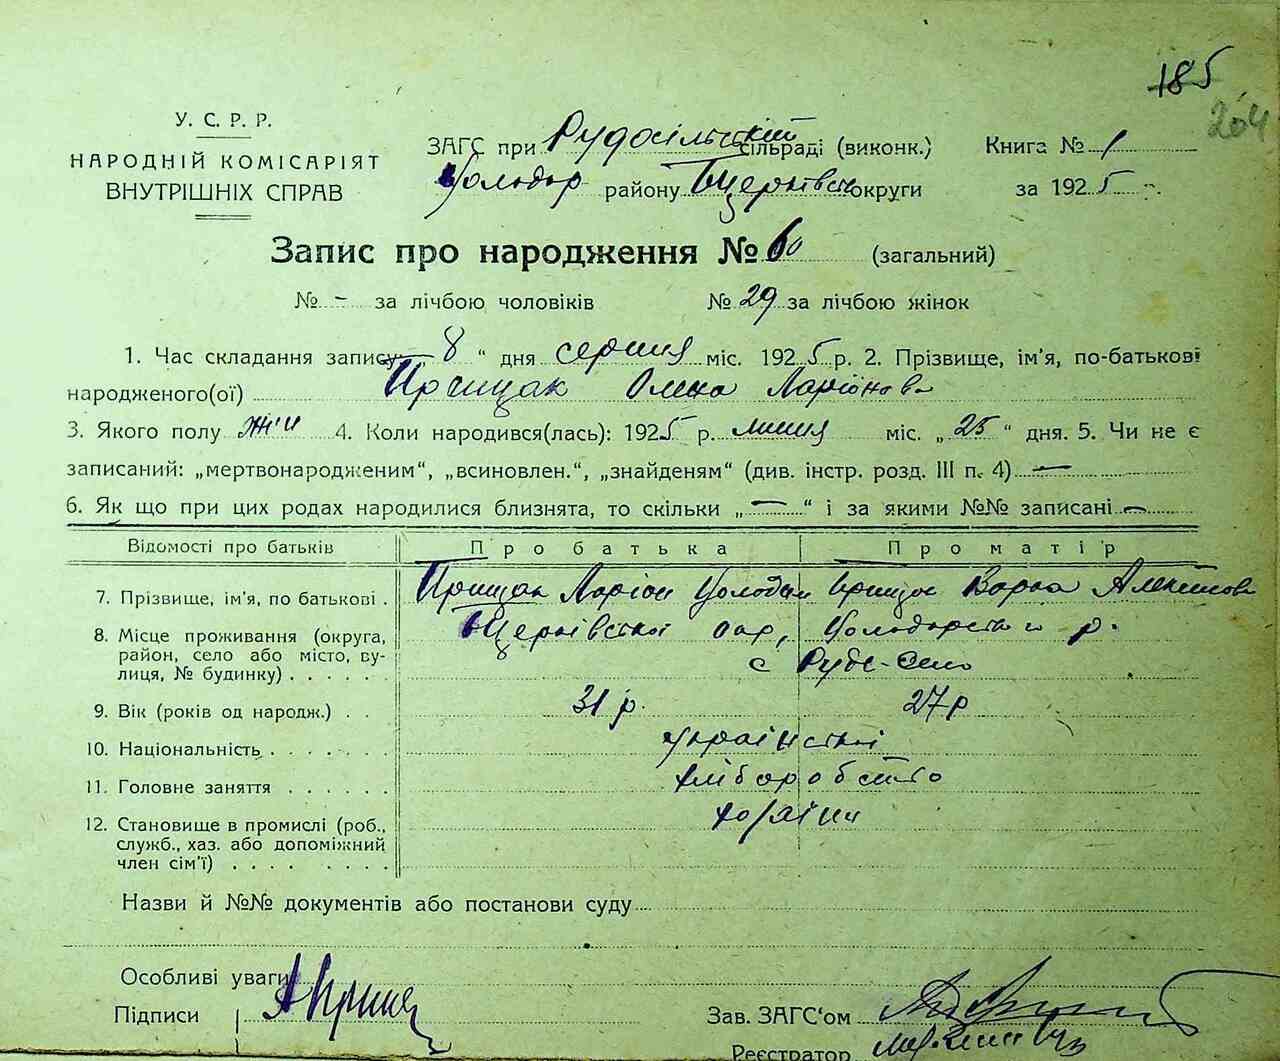 185
204
У. С. Р. Р.
НАРОДНІЙ КОМІСАРІЯТ
ВНУТРІШНІХ СПРАВ
ЗАГС при Рудосільський сільраді (виконк.) Книга № 1
Володар району БЦерківської округи за 1925
Запис про народження № 60 (загальний)
№ - за лічбою чоловіків № 29 за лічбою жінок
1. Час складання запису „ 8 “ дня серпня міс. 1925 р. 2. Прізвище, ім'я, по-батькові
народженого(ої) Прищак Олена Ларіонова
3. Якого полу жін 4. Коли народився(лась): 1925 р. липня міс. „ 25 “ дня. 5. Чи не є
записаний: „мертвонародженим“, „всиновлен.“, „знайденям“ (див. інстр. розд. III п. 4) —
6. Як що при цих родах народилися близнята, то скільки „ — “ і за якими №№ записані —
Відомості про батьків Про батька Про матір
7. Прізвище, ім'я, по батькові . Прищак Ларіон Володим Прищак Варка Алексієва
8. Місце проживання (округа, БЦерківської окр, Володарського р.
район, село або місто, ву- с Рудє-Село
лиця, № будинку) . . . . .
9. Вік (років од народж.) . . 31 р. 27 р
10. Національність . . . . . . . українській
11. Головне заняття . . . . . . хліборобство
12. Становище в промислі (роб., хозяїни
служб., хаз. або допоміжний
член сім'ї) . . . . . . . . .
Назви й №№ документів або постанови суду
Особливі уваги
Підписи Зав. ЗАГС'ом
Реєстратор